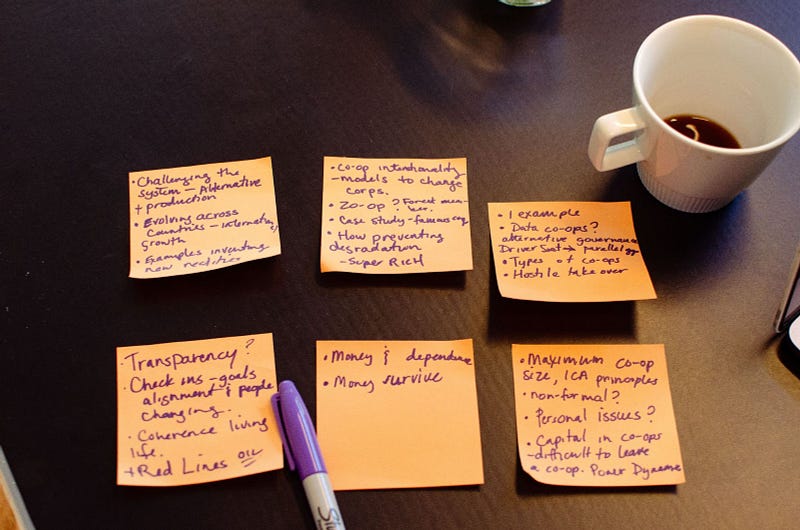 • Challenging the
system – Alternative
+ production
• Evolving across
Countries – internating
growth
• Examples inventing
new realities
• Co-op intentionality
– models to change
corps.
• Zo-op? Forest mem-
ber.
• Case study – famous eg
• How preventing
degradation
– Super Rich
• 1 example
• Data co-ops?
alternative governance
Driver Seat → parallel eg
• Types of co-ops
• Hostile take over
• Transparency?
• Check ins – goals
alignment & people
changing.
• Coherence living
life.
+ Red Lines OIL
• Money & dependence
• Money survive
• Maximum co-op
size, ICA principles
• non-formal?
• Personal issues?
• Capital in co-ops
– difficult to leave
a co-op. Power Dynamic